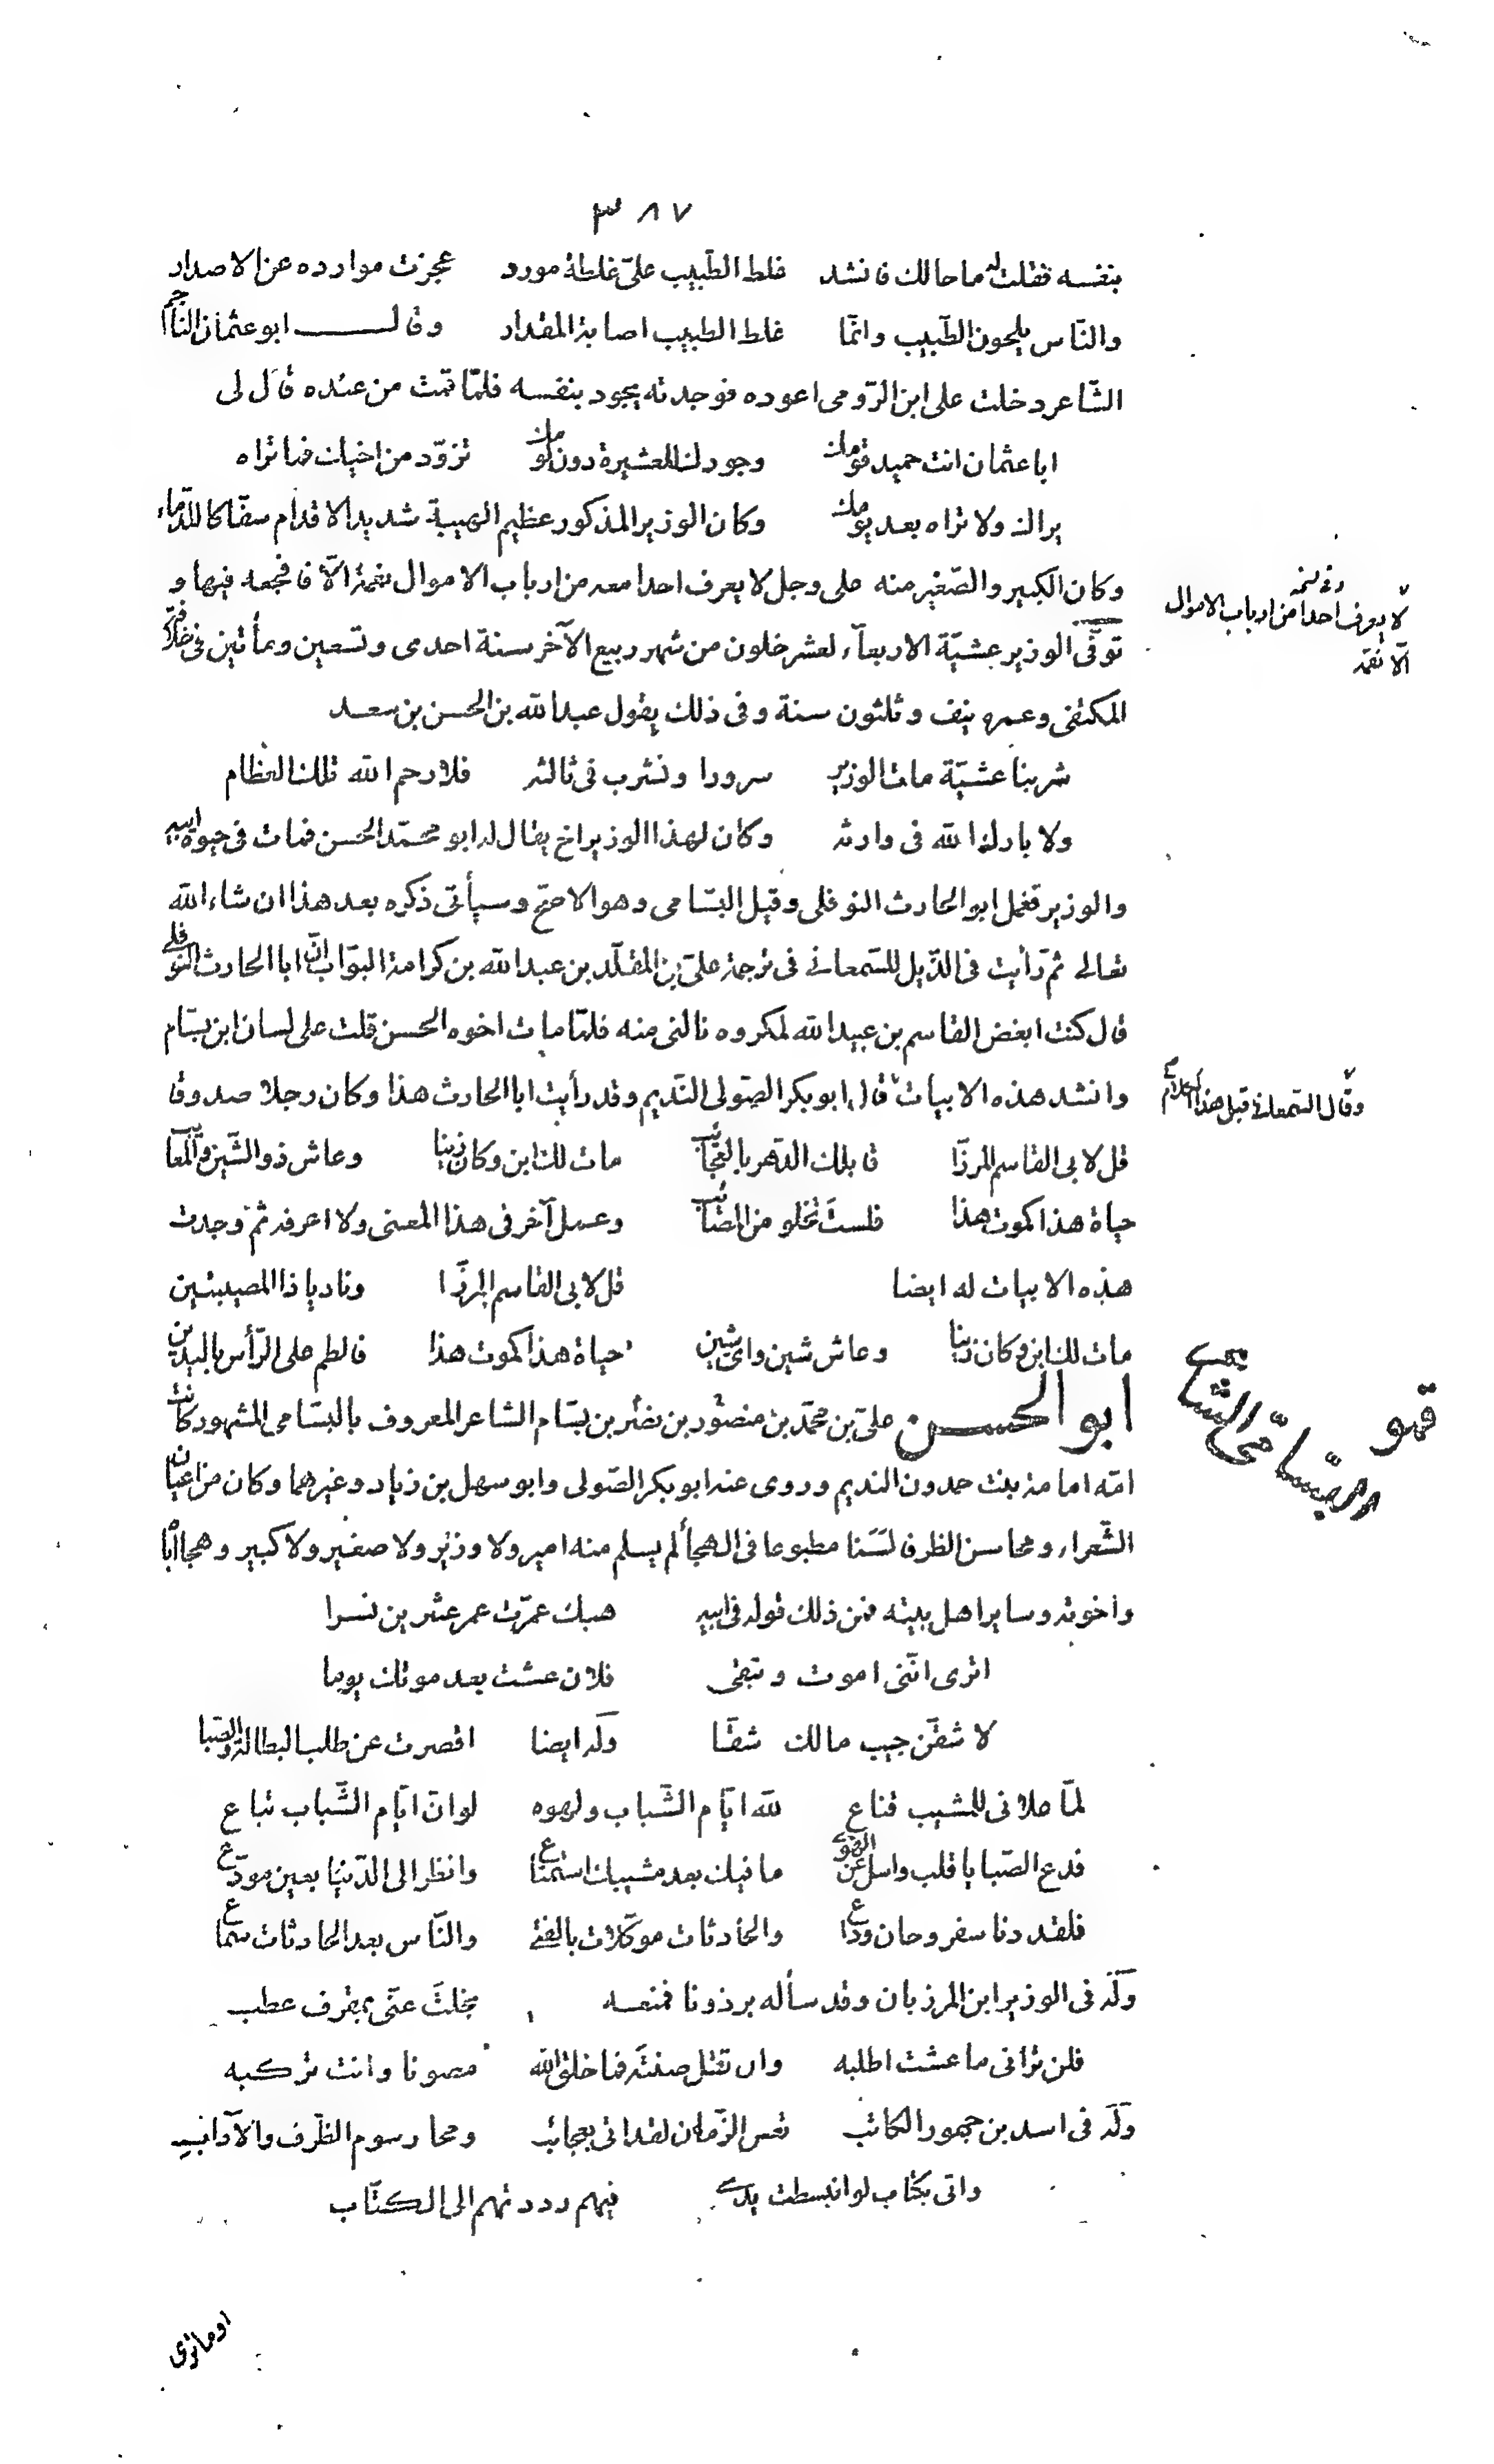 ٣٨٧
بنفسه فقلت له ما حالك فانشد غلط الطّبيب علىّ غلطة مورد عجزت موارده عن الاصدار
والنّاس يلحون الطّبيب وانّما غلط الطبيب اصابة المقدار وقال ابو عثمان النّاجم
الشّاعر دخلت على ابن الرّومى اعوده فوجدته يجود بنفسه فلمّا قمت من عنده قال لى
ابا عثمان انت حميد قومك وجودك للعشيرة دون لومك تزوّد من اخيك فما تراه
يراك ولا تراه بعد يومك وكان الوزير المذكور عظيم الهيبة شديد الاقدام سفّاكا للدّماء
وكان الكبير والصّغير منه على وجل لا يعرف احدا معه من ارباب الاموال نعمة الّا فاجعه فيها و
توفّى الوزير عشيّة الاربعآء لعشر خلون من شهر ربيع الآخر سنة احدى وتسعين ومأتين فى خلافة
المكتفى وعمره نيف وثلثون سنة وفى ذلك يقول عبد الله بن الحسن بن سعد
شربنا عشيّة مات الوزير سرورا ونشرب فى ثالثه فلا رحم الله تلك العظام
ولا بارك الله فى وارثه وكان لهذا الوزير اخ يقال له ابو محمّد الحسن فمات فى حيوة ابيه
والوزير فعمل ابو الحارث النوفلى وقيل البسّامى وهو الاصحّ وسيأتى ذكره بعد هذا ان شاء الله
تعالى ثمّ رأيت فى الذّيل للسّمعانى فى ترجمة علىّ بن المقلّد بن عبد الله بن كرامة البوّاب انّ ابا الحارث النوفلى
قال كنت ابغض القاسم بن عبيد الله لمكروه نالنى منه فلمّا مات اخوه الحسن قلت على لسان ابن بسّام
وانشد هذه الابيات قال ابو بكر الصّولى النّديم وقد رأيت ابا الحارث هذا وكان رجلا صدوقا
قل لابى القاسم المرزّا قابلك الدّهر بالعجائب مات لك ابن وكان زينا وعاش ذو الشّين والمعائب
حياة هذا كموت هذا فلستَ تخلو من المصائب وعمل آخر فى هذا المعنى ولا اعرفه ثمّ وجدت
هذه الابيات له ايضا قل لابى القاسم المرزّا وناد يا ذا المصيبتين
مات لك ابن وكان زينا وعاش شين واى شين حياة هذا كموت هذا فالطم على الرّأس باليدين
ابو الحسن علىّ بن محمّد بن منصور بن نصر بن بسّام الشاعر المعروف بالبسّامى المشهور كانت
امّه امامة بنت حمدون النديم وروى عنه ابو بكر الصّولى وابو سهل بن زياد وغيرهما وكان من اعيان
الشّعراء ومحاسن الظرفا لَسَنا مطبوعا فى الهجأ لم يسلم منه امير ولا وزير ولا صغير ولا كبير وهجا اباه
واخوته وساير اهل بيته فمن ذلك قوله فى ابيه هبك عمّرت عمر عشرين نسرا
اترى انّنى اموت وتبقى فلان عشت بعد موتك يوما
لاشقّن جيب مالك شقّا وله ايضا اقصرت عن طلب البطالة والصّبا
لمّا علانى للمشيب قناع لله ايّام الشّباب ولهوه لو انّ ايّام الشّباب تباع
فدع الصّبا يا قلب واسل عن الهوى ما فيك بعد مشيبك استمتاع وانظر الى الدّنيا بعين مودّع
فلقد دنا سفر وحان وداع والحادثات موكّلات بالفتى والنّاس بعد الحادثات سماع
وله فى الوزير ابن المرزبان وقد سأله برذونا فمنعه بخلتَ عنّى بمقرف عطب
فلن ترانى ما عشت اطلبه وان تقل صنته فما خلق الله مصونا وانت تركبه
وله فى اسد بن جهور الكاتب تعس الزّمان لقد اتى بعجائب ومحا رسوم الظّرف والآداب
واتى بكتّاب لو انبسطت يدى فيهم رددتهم الى الكتّاب
اوما ترى
وفى نسخه
لا يعرف احدا من ارباب الاموال
الّا نقمه
وقال السّمعانى قبل هذا الكلام
قهو
البسّامىّ الشاعر